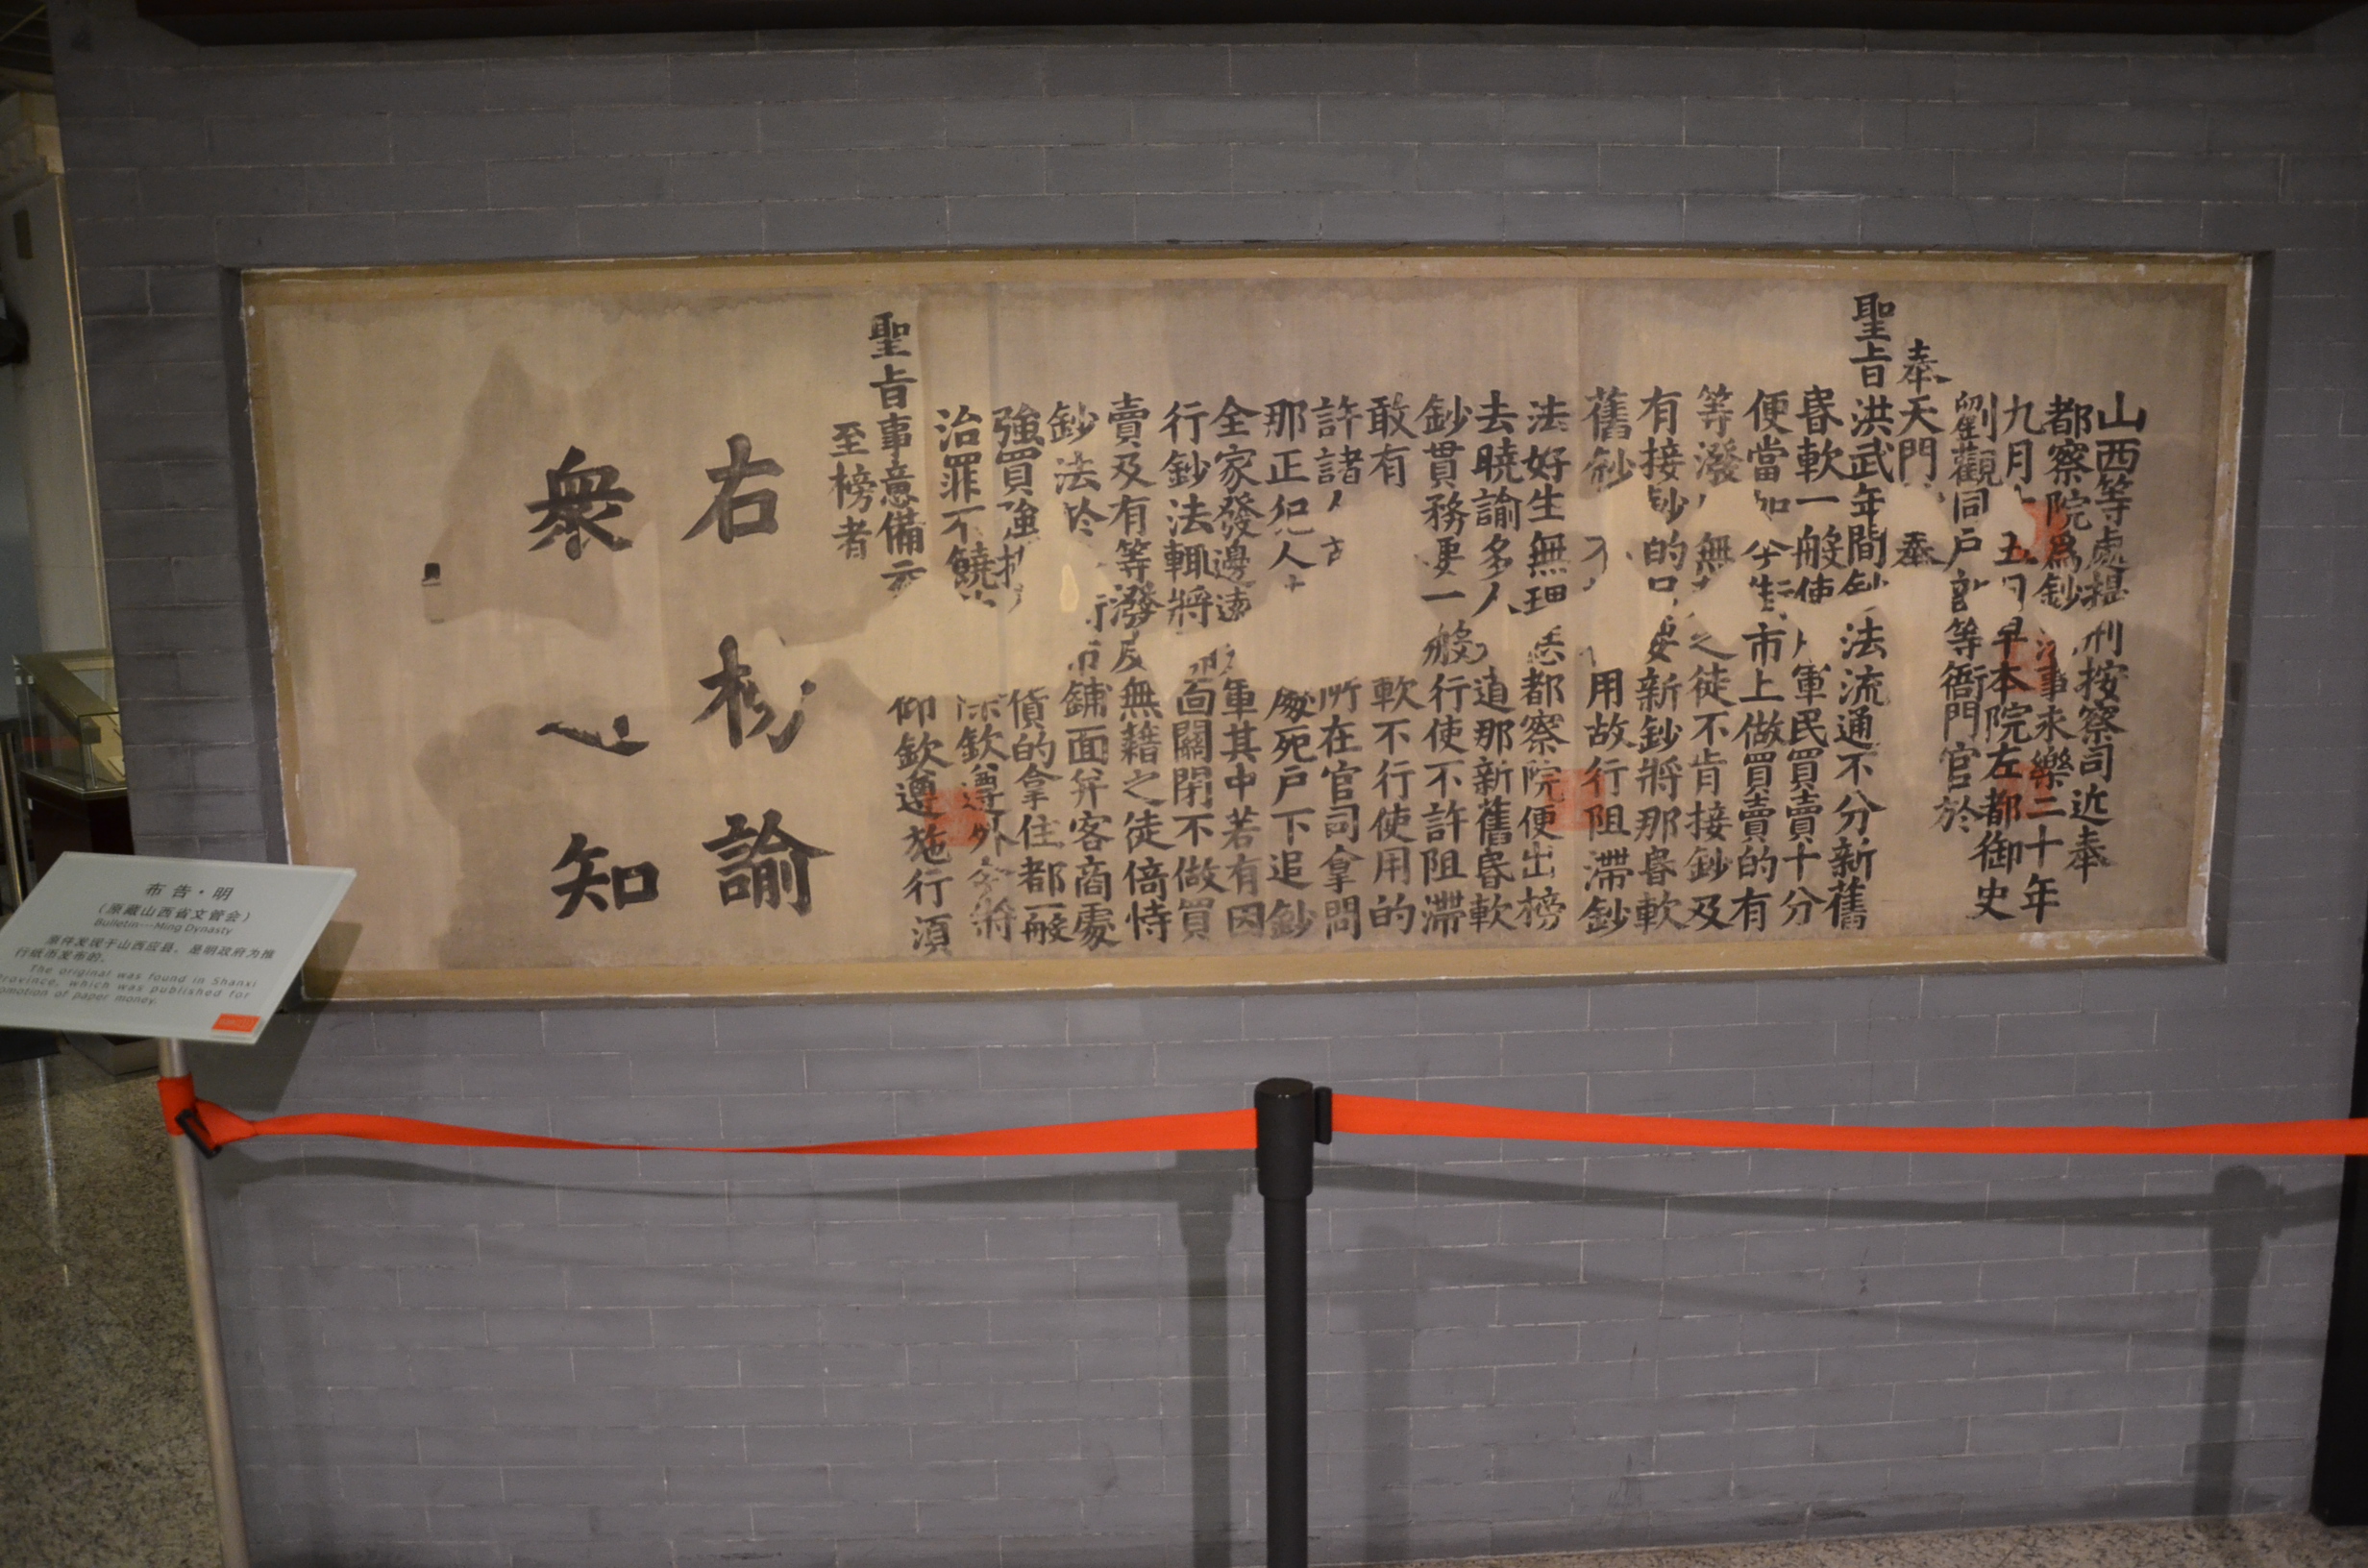 山西等處提刑按察司近奉
都察院為鈔法事永樂二十年
九月十五日早本院左都御史
劉觀同戶部等衙門官於
奉天門奏奉
聖旨洪武年間鈔法流通不分新舊
昏軟一般使軍民買賣十分
便當如今街市上做買賣的有
等潑無之徒不肯接鈔及
有接鈔的只要新鈔將那昏軟
舊鈔不用故行阻滯鈔
法好生無理恁都察院便出榜
去曉諭多人道那新舊昏軟
鈔貫務要一般行使不許阻滯
敢有軟不行使用的
許諸人所在官司拿問
那正犯人處死戶下追鈔
全家發邊遠軍其中若有因
行鈔法輒將面關閉不做買
賣及有等潑皮無籍之徒倚恃
鈔法於街市鋪面并客商處
強買強貨的拿住都一般
治罪不饒欽遵外今將
聖旨事意備云仰欽遵施行須
至榜者
右榜諭
眾知
布告·明
(原藏山西省文管会)
Bulletin---Ming Dynasty
原件发现于山西应县，是明政府为推
行纸币发布的。
The original was found in Shanxi
Province, which was published for
promotion of paper money.